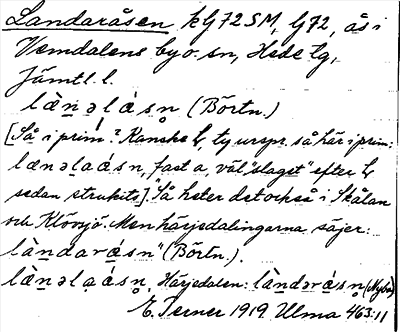 Landaråsen kG72SM, G72, ås i
Vemdalens by o. sn, Hede tg,
Jämtl. l.
læ̀n̠əl á̠sn̥ (Börtn.)
[Så i prim.? Kanske ty urspr. så här i prim:
læn̠əl̠aásn, fast a, väl "slaget" efter
sedan strukits]. "Så heter det också i Skålan
och Klövsjö. Men härjedalingarna säjer:
làndará̠sn̥" (Börtn.).
læ̀n̠əl̠a á̠sn̥. Härjedalen: làndərá̠sn̥ (Nybo)
E. Terner 1919 Ulma 463:11